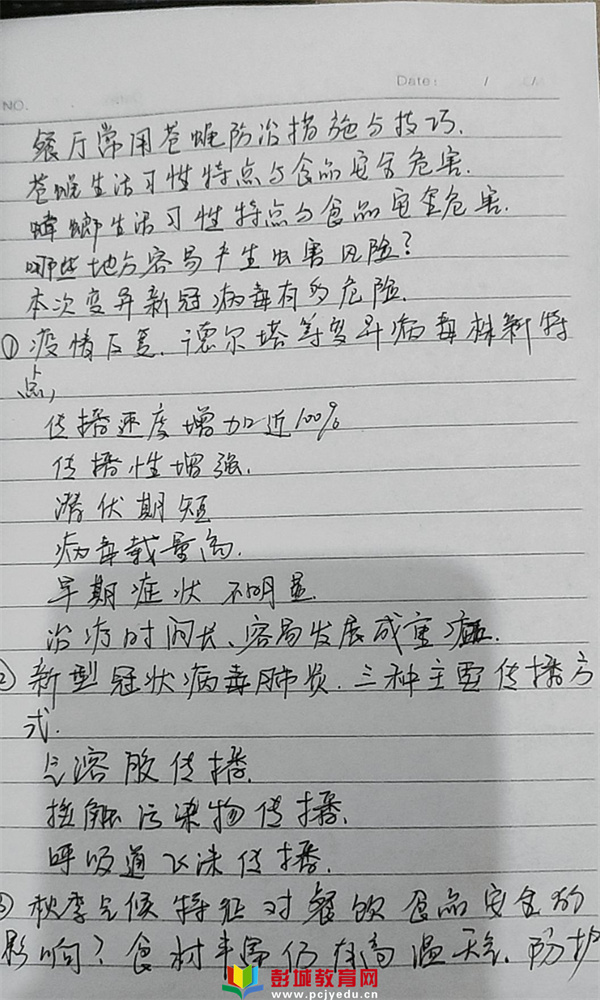 Date: / /
NO.
餐厅常用苍蝇防治措施与技巧.
苍蝇生活习性特点与食品安全危害.
蟑螂生活习性特点与食品安全危害.
哪些地方容易产生虫害风险?
本次变异新冠病毒有的危险.
①疫情反复.德尔塔等变异病毒株新特
点,
传播速度增加近100%
传播性增强.
潜伏期短
病毒载量高.
早期症状不明显.
治疗时间长、容易发展成重症.
②新型冠状病毒肺炎.三种主要传播方
式.
气溶胶传播.
接触污染物传播.
呼吸道飞沫传播.
③秋季气候特征对餐饮食品安全的
影响?食材
仍有高温天气.防护
彭城教育网
www.pcjyedu.cn